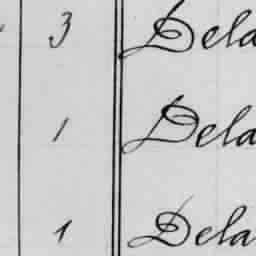 3 Dela
1 Dela
1 Dela